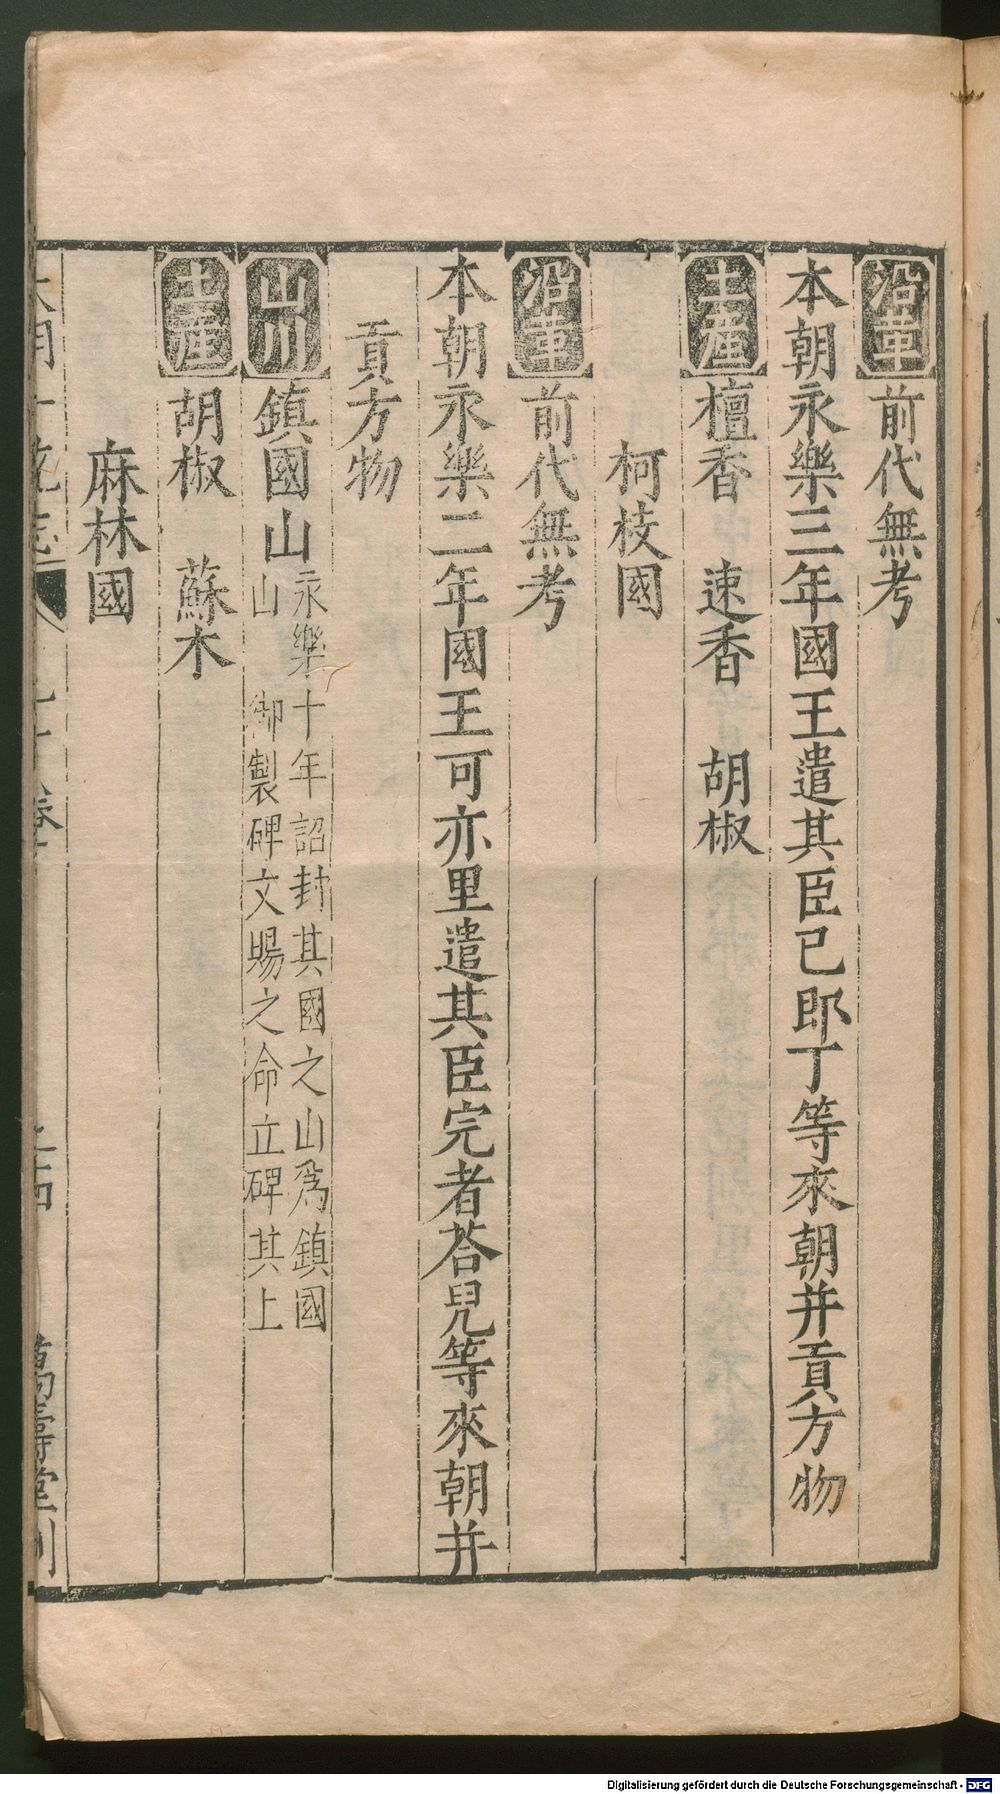 沿革前代無考
本朝永樂三年國王遣其臣已即丁等來朝并貢方物
土產檀香 速香 胡椒
柯枝國
沿革前代無考
本朝永樂二年國王可亦里遣其臣完者荅兒等來朝并
貢方物
山川鎮國山永樂十年詔封其國之山爲鎮國
山 御製碑文賜之命立碑其上
土產胡椒 蘇木
麻林國
大明一統志 卷 九十 萬壽堂刊
Digitalisierung gefördert durch die Deutsche Forschungsgemeinschaft - DFG